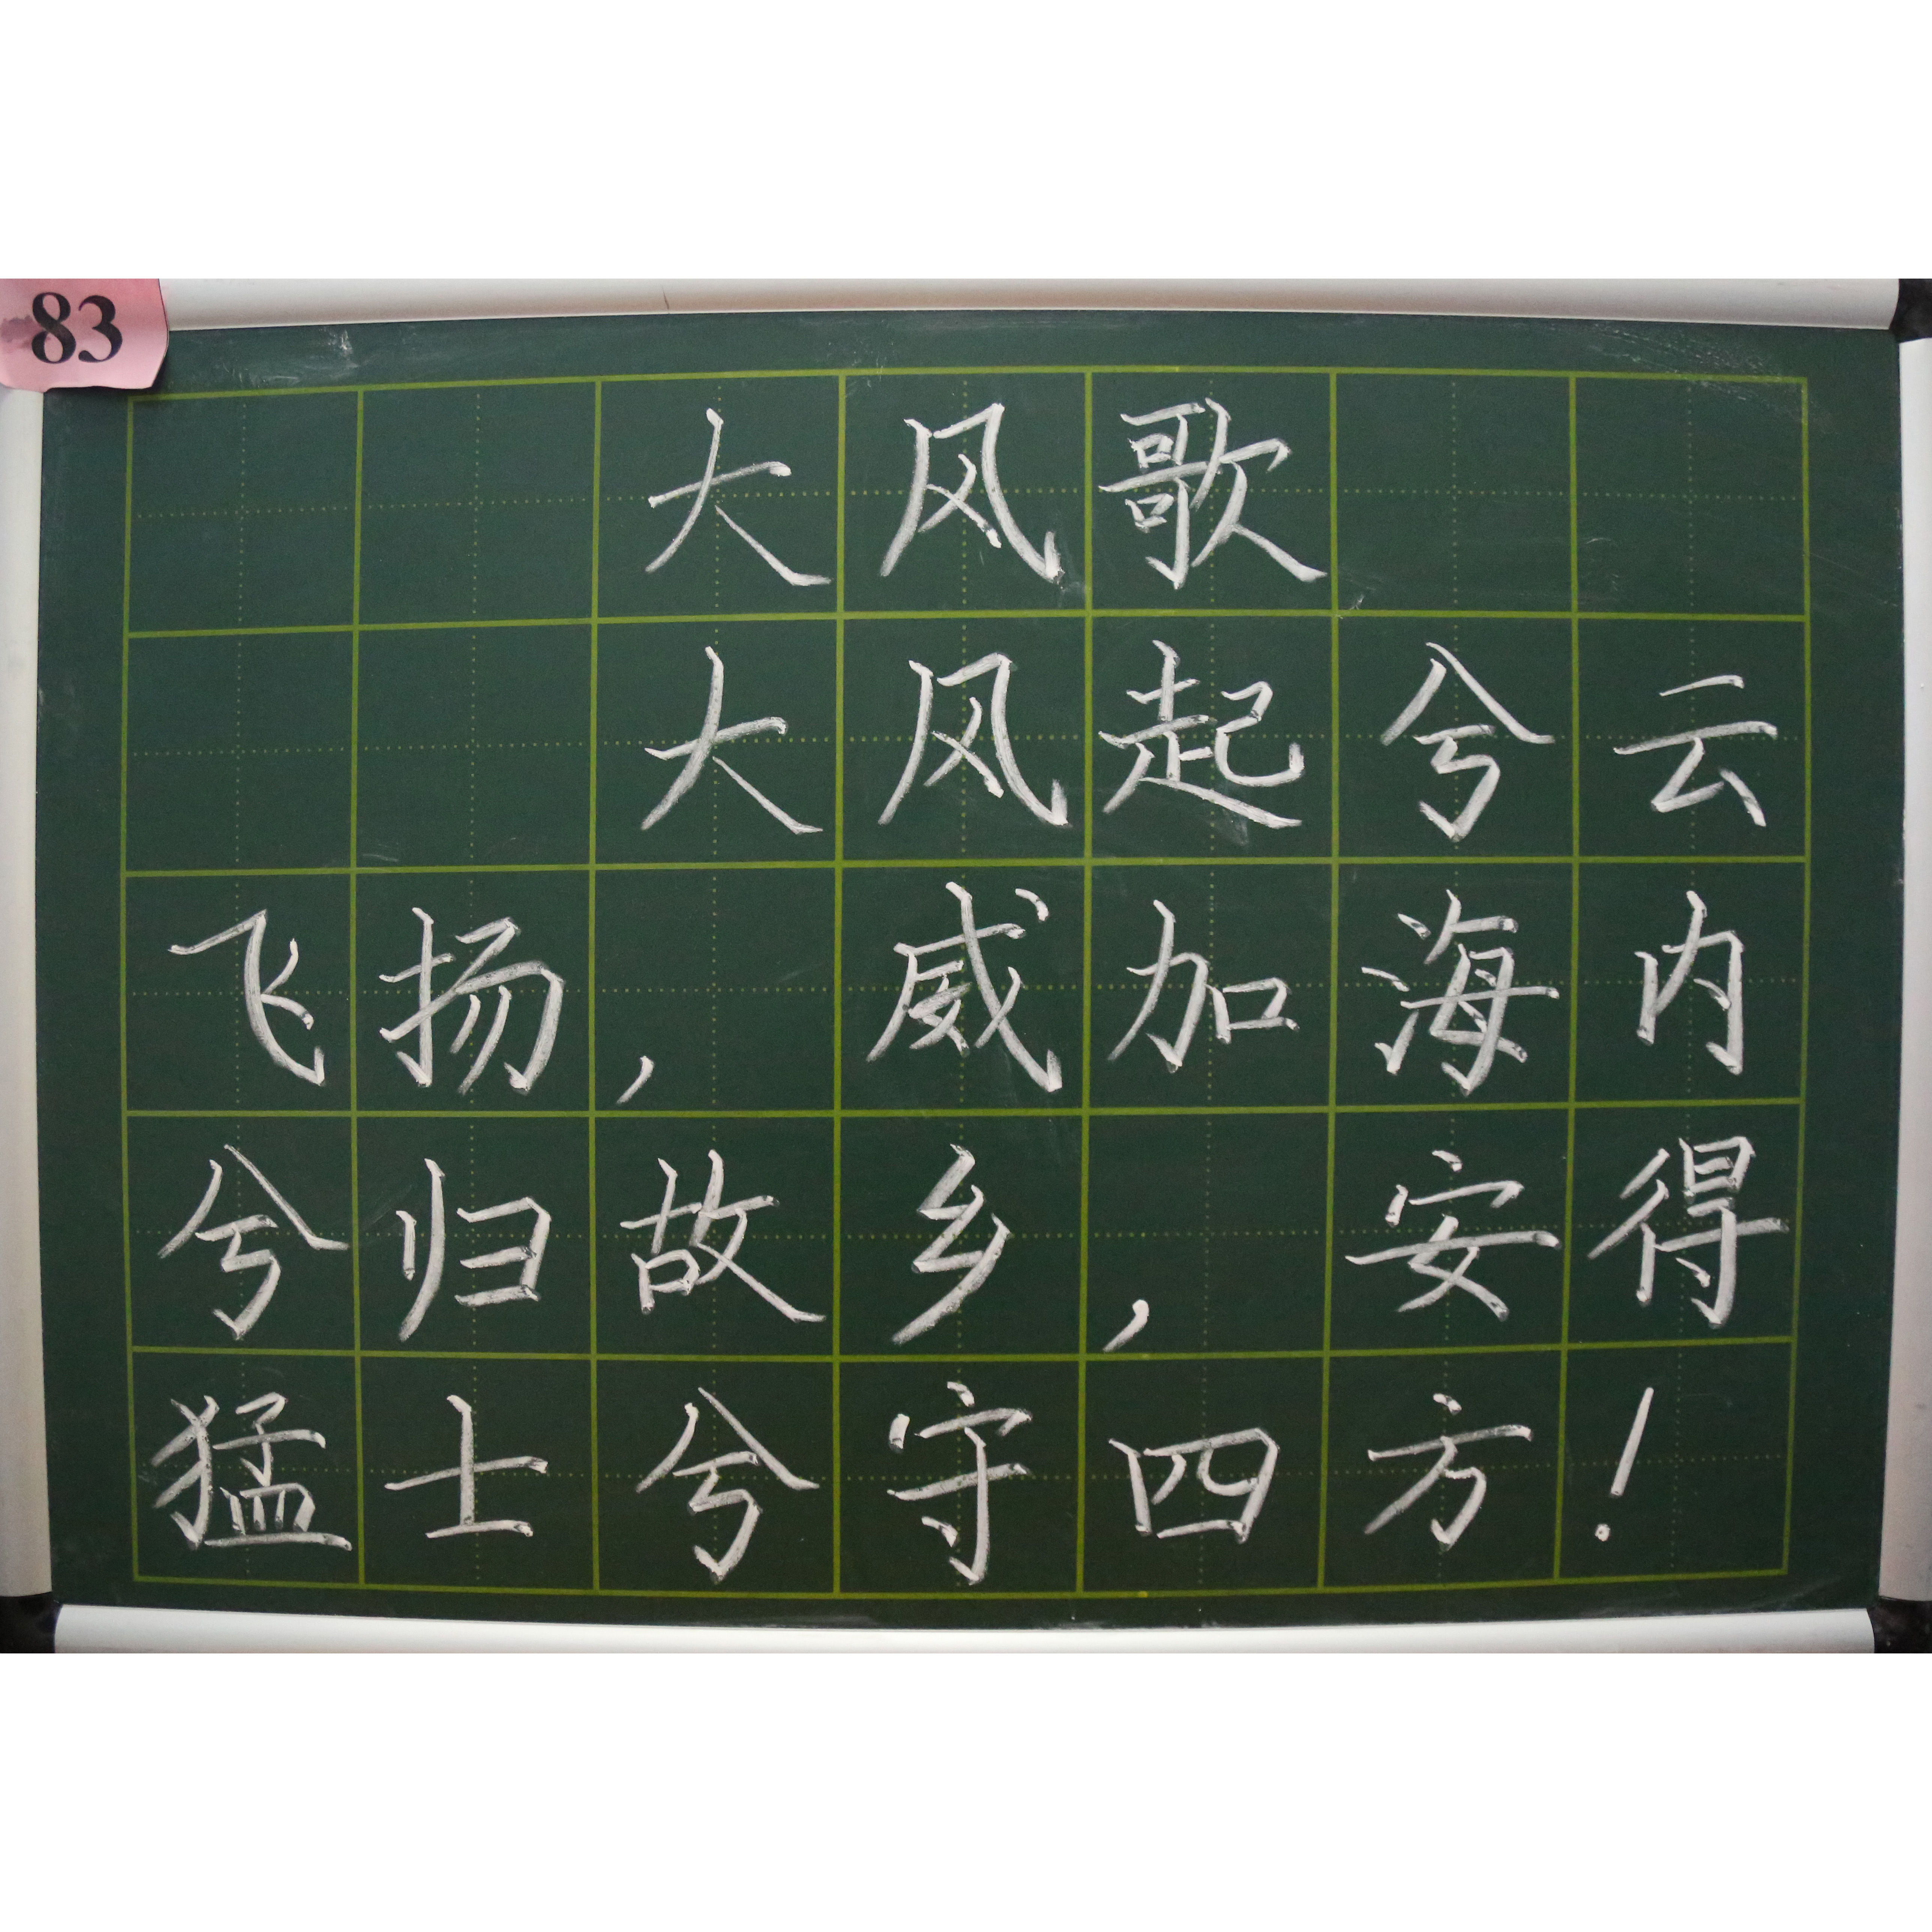 83
大风歌
大风起兮云
飞扬，威加海内
兮归故乡，安得
猛士兮守四方！